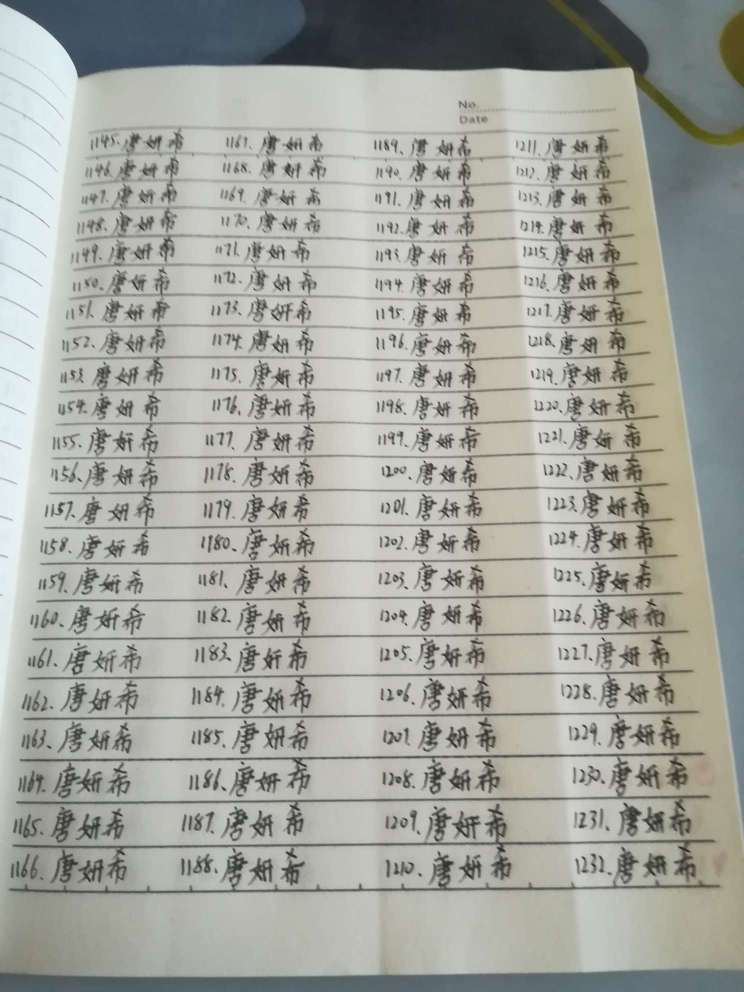 No.
Date
1145、唐妍希
1146、唐妍希
1147、唐妍希
1148、唐妍希
1149、唐妍希
1150、唐妍希
1151、唐妍希
1152、唐妍希
1153、唐妍希
1154、唐妍希
1155、唐妍希
1156、唐妍希
1157、唐妍希
1158、唐妍希
1159、唐妍希
1160、唐妍希
1161、唐妍希
1162、唐妍希
1163、唐妍希
1164、唐妍希
1165、唐妍希
1166、唐妍希
1167、唐妍希
1168、唐妍希
1169、唐妍希
1170、唐妍希
1171、唐妍希
1172、唐妍希
1173、唐妍希
1174、唐妍希
1175、唐妍希
1176、唐妍希
1177、唐妍希
1178、唐妍希
1179、唐妍希
1180、唐妍希
1181、唐妍希
1182、唐妍希
1183、唐妍希
1184、唐妍希
1185、唐妍希
1186、唐妍希
1187、唐妍希
1188、唐妍希
1189、唐妍希
1190、唐妍希
1191、唐妍希
1192、唐妍希
1193、唐妍希
1194、唐妍希
1195、唐妍希
1196、唐妍希
1197、唐妍希
1198、唐妍希
1199、唐妍希
1200、唐妍希
1201、唐妍希
1202、唐妍希
1203、唐妍希
1204、唐妍希
1205、唐妍希
1206、唐妍希
1207、唐妍希
1208、唐妍希
1209、唐妍希
1210、唐妍希
1211、唐妍希
1212、唐妍希
1213、唐妍希
1214、唐妍希
1215、唐妍希
1216、唐妍希
1217、唐妍希
1218、唐妍希
1219、唐妍希
1220、唐妍希
1221、唐妍希
1222、唐妍希
1223、唐妍希
1224、唐妍希
1225、唐妍希
1226、唐妍希
1227、唐妍希
1228、唐妍希
1229、唐妍希
1230、唐妍希
1231、唐妍希
1232、唐妍希